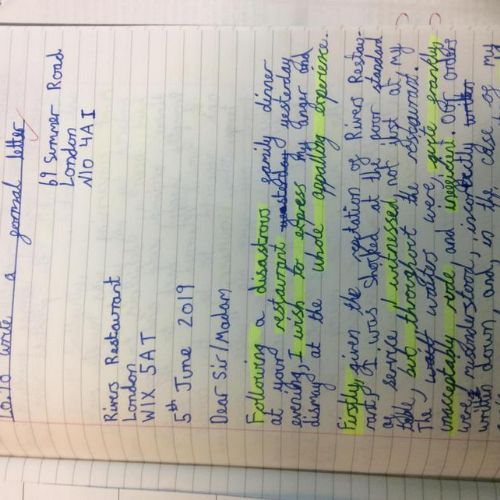 to write a formal letter
69 Summer Road
London
N10 4AI
Rivers Restaurant
London
W1X 5AT
5th June 2019
Dear Sir/Madam
Following a disastrous family dinner
at your restaurant yesterday
evening, I wish to express my anger and
dismay at the whole appalling experience.
Firstly, given the reputation of Rivers Restau-
rant, I was shocked at the poor standard
of service I witnessed, not just at my
table, but throughout the restaurant.
The waiters were, quite frankly,
unacceptably rude and inefficient. Our orders
were misunderstood, incorrectly
written down and, in the case of my